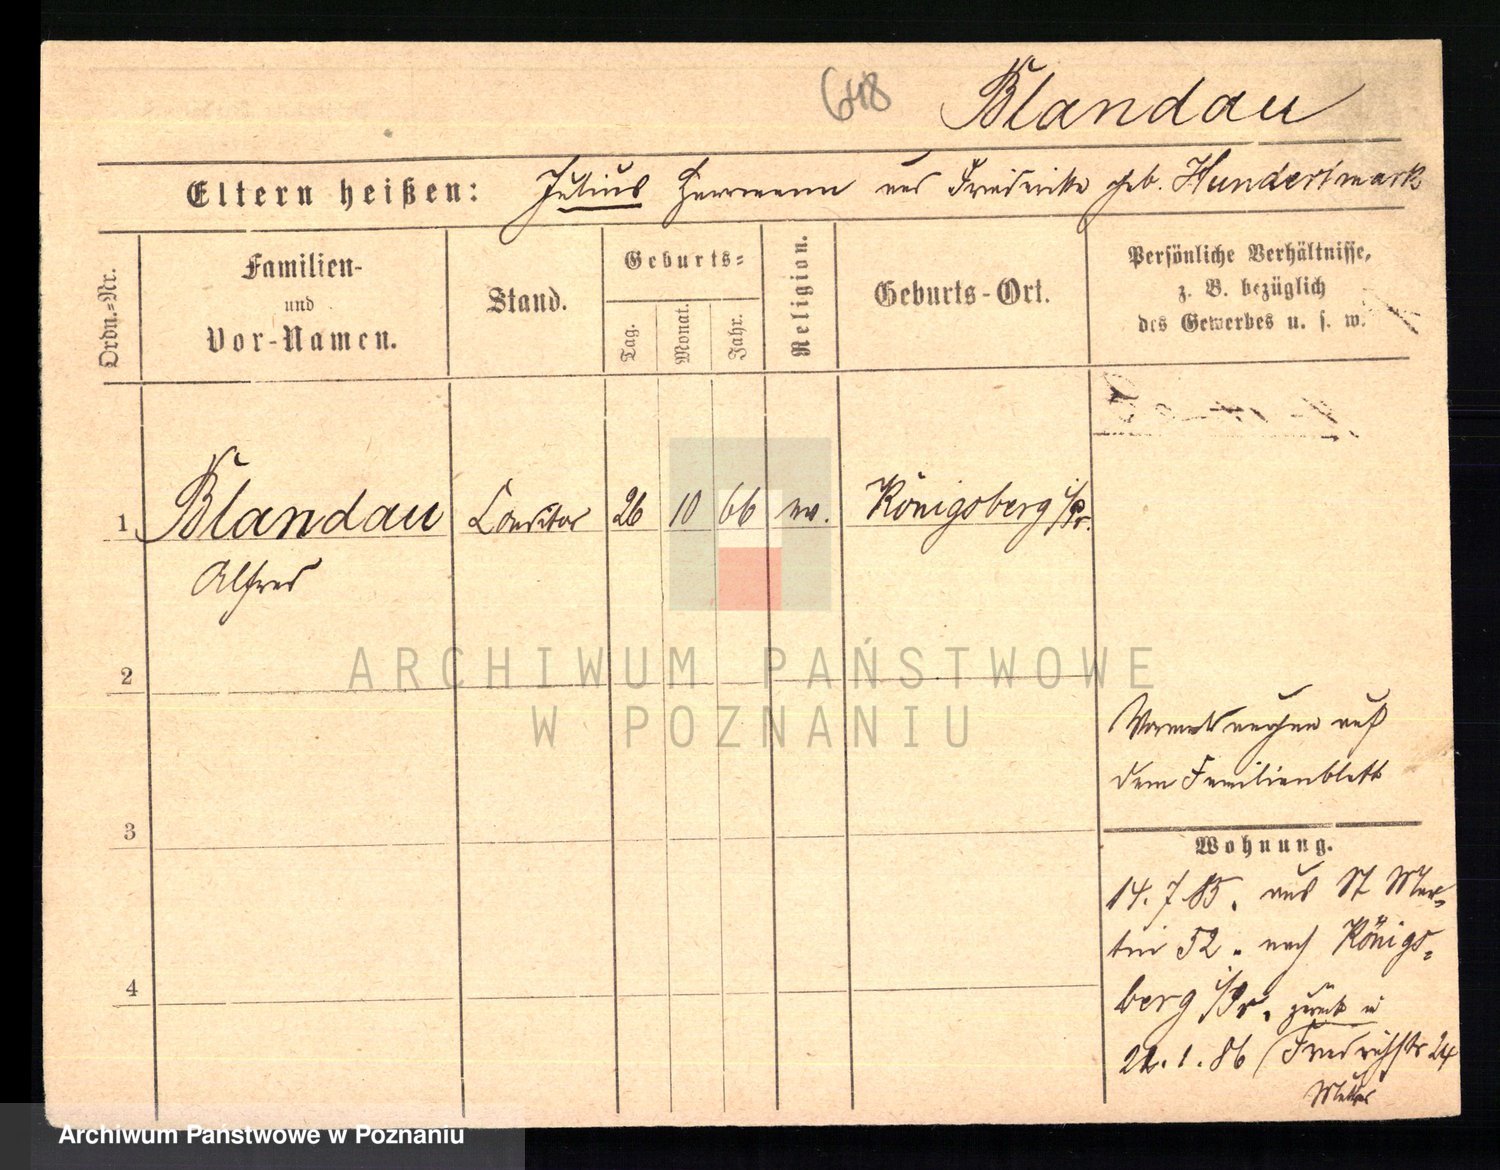 648
Blandau
Eltern heißen: Julius Hermann und Friederike geb. Hundertmark
Ordn.-Nr.
Familien-
und
Vor-Namen.
Stand.
Geburts-
Tag.
Monat.
Jahr.
Religion.
Geburts-Ort.
Persönliche Verhältnisse,
z. B. bezüglich
des Gewerbes u. s. w.
1 Blandau Conditor 26 10 66 ev. Königsberg i/Pr.
Alfred
2
3
4
auf
dem Familienblatt
Wohnung.
14. 7. 85. aus St Mar-
tin 52. nach Königs-
berg i/Pr. zurück
22. 1. 86 Friedrichstr 24
Mutter
ARCHIWUM PAŃSTWOWE
W POZNANIU
Archiwum Państwowe w Poznaniu